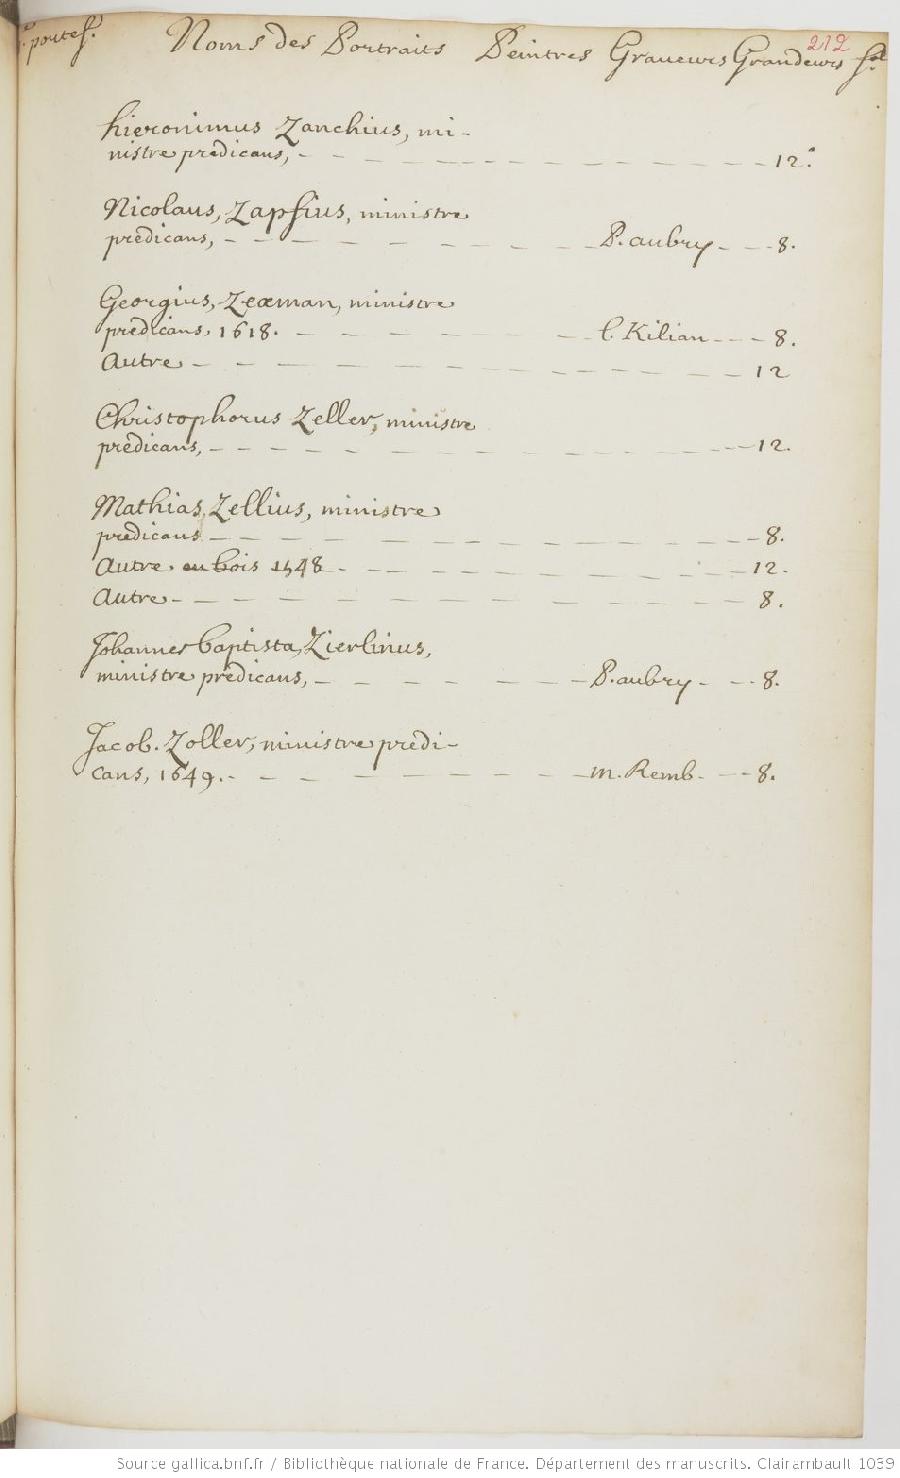 portef. Noms des Portraits Peintres Graveurs Grandeurs fol
212
hieronimus Zanchius, mi-
nistre prédicans, 12.
Nicolaus, Zapfius, ministre
prédicans, P. aubry 8.
Georgius, Zeæman, ministre
prédicans, 1618. l. Kilian 8.
Autre 12
Christophorus Zeller, ministre
prédicans, 12.
Mathias, Zellius, ministre
prédicans 8.
Autre. en bois 1548 12.
Autre 8.
Johannes baptista, Zierlinus,
ministre prédicans, P. aubry 8.
Jacob. Zoller, ministre prédi-
cans, 1649. m. Remb. 8.
Source gallica.bnf.fr / Bibliothèque nationale de France. Département des manuscrits. Clairambault 1039